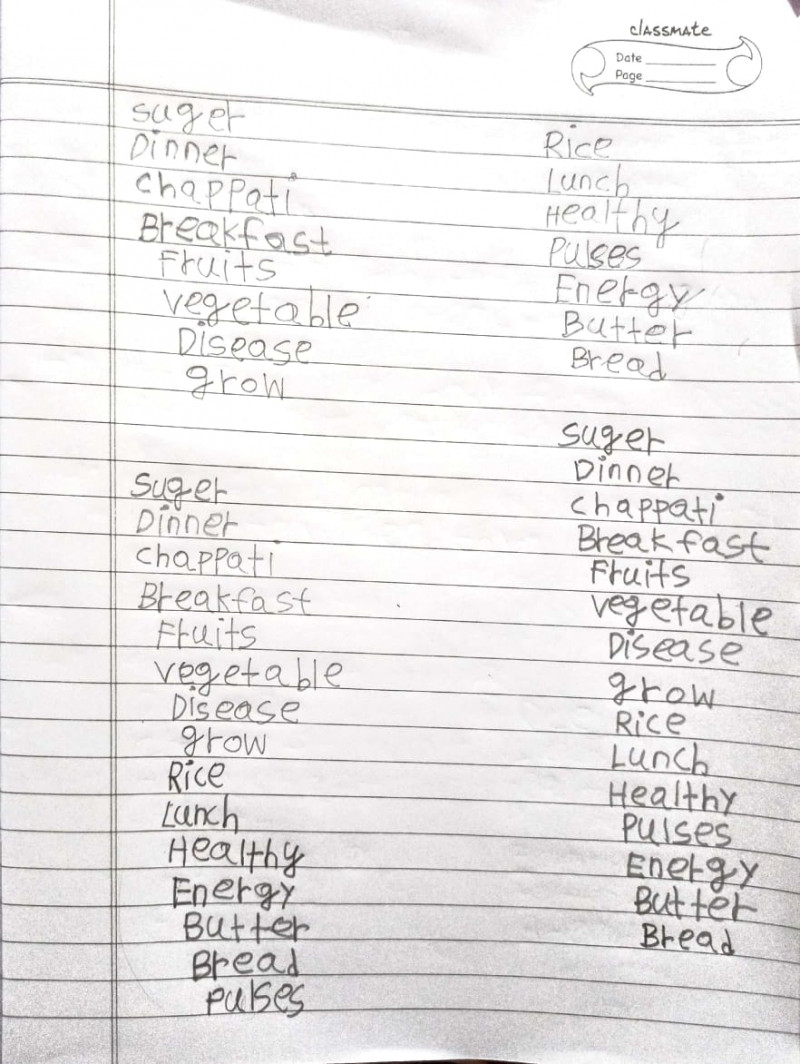 classmate
Date
Page
suger
Dinner
chappati
Breakfast
Fruits
vegetable
Disease
grow
Rice
Lunch
Healthy
Pulses
Energy
Butter
Bread
Suger
Dinner
chappati
Breakfast
Fruits
vegetable
Disease
grow
Rice
Lunch
Healthy
Energy
Butter
Bread
pulses
Suger
Dinner
chappati
Breakfast
Fruits
vegetable
Disease
grow
Rice
Lunch
Healthy
Pulses
Energy
Butter
Bread